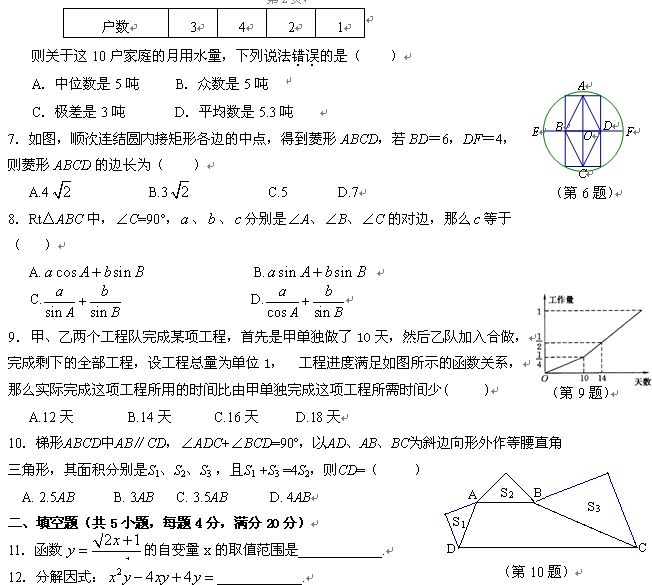 户数 3 4 2 1
则关于这 10 户家庭的月用水量，下列说法错误的是（ ）
A．中位数是 5 吨 B．众数是 5 吨
C．极差是 3 吨 D．平均数是 5.3 吨
7．如图，顺次连结圆内接矩形各边的中点，得到菱形 ABCD，若 BD＝6，DF＝4，
则菱形 ABCD 的边长为（ ）
A.4√2 B.3√2 C.5 D.7
A
E B O D F
C
（第 6 题）
8．Rt△ABC 中，∠C=90°，a、b、c 分别是∠A、∠B、∠C 的对边，那么 c 等于
（ ）
A. a cos A + b sin B B. a sin A + b sin B
C. a/sin A + b/sin B D. a/cos A + b/sin B
9．甲、乙两个工程队完成某项工程，首先是甲单独做了 10 天，然后乙队加入合做，
完成剩下的全部工程，设工程总量为单位 1， 工程进度满足如图所示的函数关系，
那么实际完成这项工程所用的时间比由甲单独完成这项工程所需时间少( )
A.12 天 B.14 天 C.16 天 D.18 天
工作量
1
1/2
1/4
O 10 14 天数
（第 9题）
10．梯形ABCD中AB∥CD，∠ADC+∠BCD=90°，以AD、AB、BC为斜边向形外作等腰直角
三角形，其面积分别是S₁、S₂、S₃ ，且S₁ +S₃ =4S₂，则CD=（ ）
A. 2.5AB B. 3AB C. 3.5AB D. 4AB
A S₂ B S₃
S₁
D C
（第 10 题）
二、填空题（共 5 小题，每题 4 分，满分 20 分）
11．函数 y = √(2x+1) 的自变量 x 的取值范围是____________.
12．分解因式：x²y－4xy＋4y＝____________.